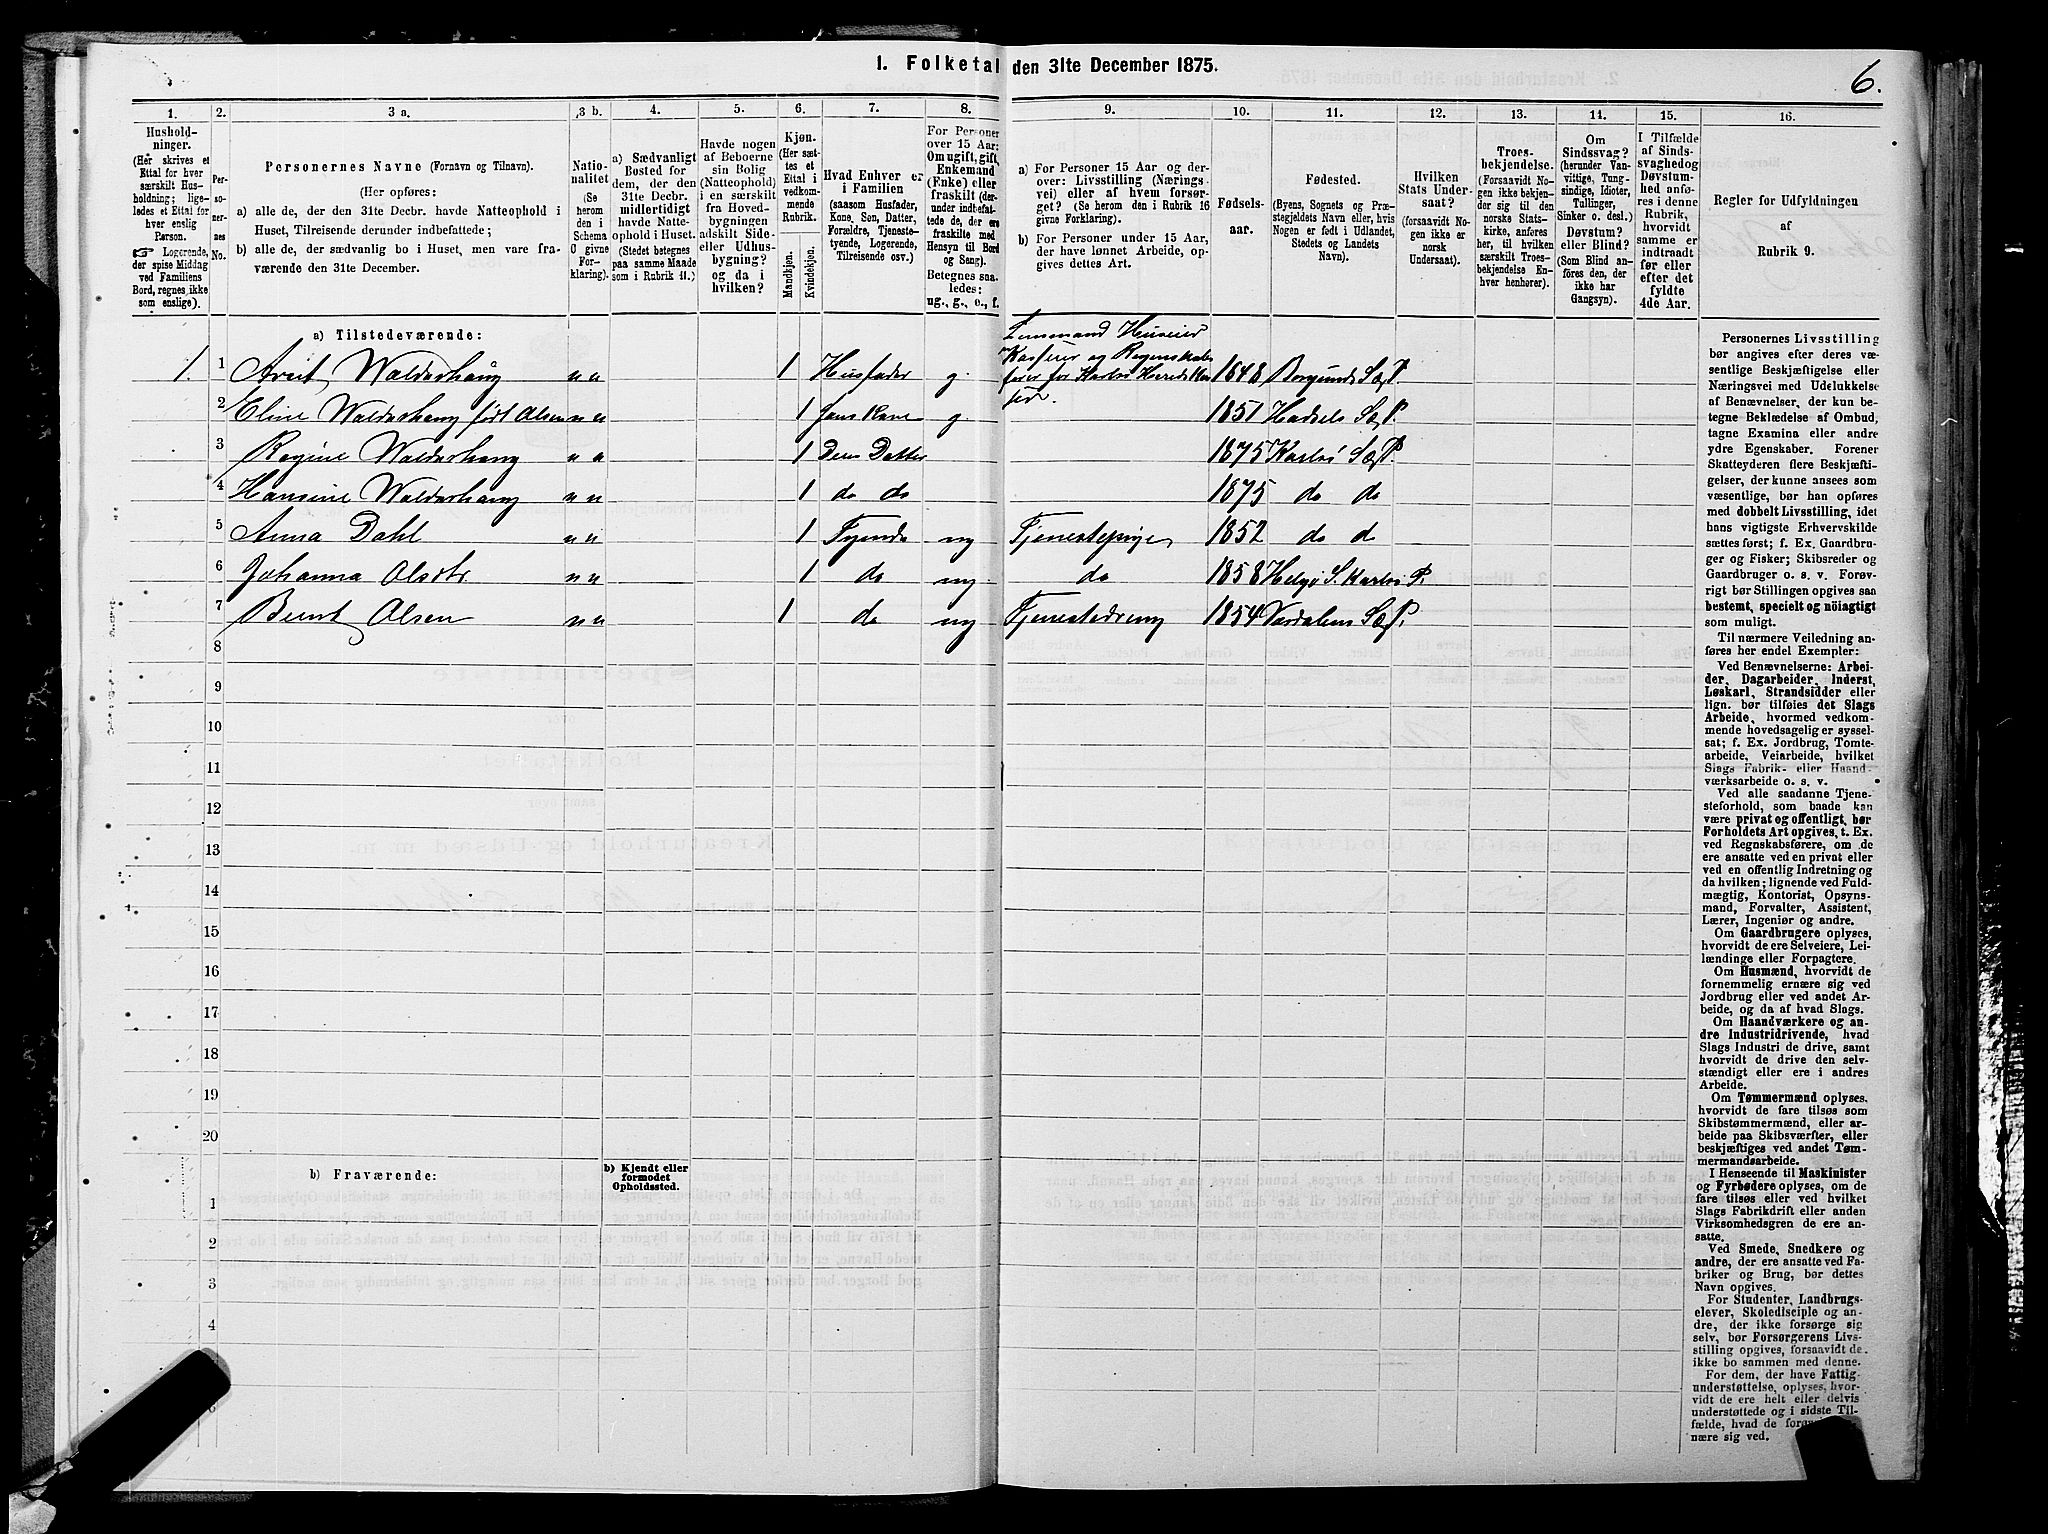 1. Folketal den 31te December 1875.
6.
1.
2.
3 a.
3 b.
4.
5.
6.
7.
8.
9.
10.
11.
12.
13.
14.
15.
16.
Hushold-
ninger.
(Her skrives et
Ettal for hver
særskilt Hus-
holdning; lige-
ledes et Ettal for
hver enslig
Person.
Logerende,
der spise Middag
ved Familiens
Bord, regnes ikke
som enslige).
Per-
so-
ner-
nes
No.
Personernes Navne (Fornavn og Tilnavn).
(Her opføres:
a) alle de, der den 31te Decbr. havde Natteophold i
Huset, Tilreisende derunder indbefattede;
b) alle de, der sædvanlig bo i Huset, men vare fra-
værende den 31te December.
Natio-
nalitet
(Se
herom
den i
Schema
O givne
For-
klaring).
a) Sædvanligt
Bosted for
dem, der den
31te Decbr.
midlertidigt
havde Natte-
ophold i Huset.
(Stedet betegnes
paa samme Maade
som i Rubrik 11.)
Havde nogen
af Beboerne
sin Bolig
(Natteophold)
i en særskilt
fra Hoved-
bygningen
adskilt Side-
eller Udhus-
bygning?
og da i
hvilken?
Kjøn.
(Her sæt-
tes et
Ettal i
vedkom-
mende
Rubrik.
Mandkjøn.
Kvindekjøn.
Hvad Enhver er
i Familien
(saasom Husfader,
Kone, Søn, Datter,
Forældre, Tjeneste-
tyende, Logerende,
Tilreisende osv.)
For Personer
over 15 Aar:
Om ugift, gift,
Enkemand
(Enke) eller
fraskilt (der-
under indbefat-
tede de, der ere
fraskilte med
Hensyn til Bord
og Seng).
Betegnes saa-
ledes:
ug., g., e., f.
a) For Personer 15 Aar og der-
over: Livsstilling (Nærings-
vei) eller af hvem forsør-
get? (Se herom den i Rubrik 16
givne Forklaring).
b) For Personer under 15 Aar,
der have lønnet Arbeide, op-
gives dettes Art.
Fødsels-
aar.
Fødested.
(Byens, Sognets og Præ-
stegjeldets Navn eller, hvis
Nogen er født i Udlandet,
Stedets og Landets
Navn).
Hvilken
Stats Under-
saat?
(forsaavidt No-
gen ikke er
norsk
Undersaat).
Troes-
bekjendelse.
(Forsaavidt No-
gen ikke bekjen-
der sig til den
norske Stats-
kirke, anføres
her, til hvilken
særskilt Troes-
bekjendelse En-
hver henhører).
Om
Sindssvag?
(herunder Van-
vittige, Tung-
sindige, Idioter,
Tullinger,
Sinker o. desl.)
Døvstum?
eller Blind?
(Som Blind an-
føres den, der
ikke har
Gangsyn).
I Tilfælde
af Sinds-
svaghed og
Døvstum-
hed anfø-
res i denne
Rubrik,
hvorvidt
samme er
indtraadt
før eller
efter det
fyldte
4de Aar.
Regler for Udfyldningen
af
Rubrik 9.
a) Tilstedeværende:
1. 1 Arnt Walderhaug n n 1 Husfader g. Lensmand Huseier Kasserer og Regnskabs fører for Karlsø Hereds 1848 Borgunds S&P.
2 Eline Walderhaug født Olsen n n 1 hans Kone g 1851 Hadsels S&P.
3 Regine Walderhaug n n 1 Deres Datter 1875 Karlsø S&P.
4 Hansine Walderhaug n n 1 do do 1875 do do
5 Anna Dahl n n 1 Tyende ug Tjenestepige 1852 do do
6 Johanna Olsdtr n n 1 do ug. do 1858 Helgø S. Karlsø P.
7 Bernt Olsen n n 1 do ug Tjenestedreng 1854 Værdalens S&P.
8
9
10
11
12
13
14
15
16
17
18
19
20
b) Fraværende:
b) Kjendt eller
formodet
Opholdssted.
1
2
3
4
Personernes Livsstilling
bør angives efter deres væ-
sentlige Beskjæftigelse eller
Næringsvei med Udelukkelse
af Benævnelser, der kun be-
tegne Beklædelse af Ombud,
tagne Examina eller andre
ydre Egenskaber. Forener
Skatteyderen flere Beskjæfti-
gelser, der kunne ansees som
væsentlige, bør han opføres
med dobbelt Livsstilling, idet
hans vigtigste Erhvervskilde
sættes først; f. Ex. Gaardbru-
ger og Fisker; Skibsreder og
Gaardbruger o. s. v. Forøv-
rigt bør Stillingen opgives saa
bestemt, specielt og nøiagtigt
som muligt.
Til nærmere Veiledning an-
føres her endel Exempler:
Ved Benævnelserne: Arbei-
der, Dagarbeider, Inderst,
Løskarl, Strandsidder eller
lign. bør tilføies det Slags
Arbeide, hvormed vedkom-
mende hovedsagelig er syssel-
sat; f. Ex. Jordbrug, Tomte-
arbeide, Veiarbeide, hvilket
Slags Fabrik- eller Haand-
værksarbeide o. s. v.
Ved alle saadanne Tjene-
steforhold, som baade kan
være privat og offentligt, bør
Forholdets Art opgives, t. Ex.
ved Regnskabsførere, om de
ere ansatte ved en privat eller
ved en offentlig Indretning og
da hvilken; lignende ved Fuld-
mægtig, Kontorist, Opsyns-
mand, Forvalter, Assistent,
Lærer, Ingeniør og andre.
Om Gaardbrugere oplyses,
hvorvidt de ere Selveiere, Lei-
lændinge eller Forpagtere.
Om Husmænd, hvorvidt de
fornemmelig ernære sig ved
Jordbrug eller ved andet Ar-
beide, og da af hvad Slags.
Om Haandværkere og an-
dre Industridrivende, hvad
Slags Industri de drive, samt
hvorvidt de drive den selv-
stændigt eller ere i andres
Arbeide.
Om Tømmermænd oplyses,
hvorvidt de fare tilsøs som
Skibstømmermænd, eller ar-
beide paa Skibsværfter, eller
beskjæftiges ved andet Tøm-
mermandsarbeide.
I Henseende til Maskinister
og Fyrbødere oplyses, om de
fare tilsøs eller ved hvilket
Slags Fabrikdrift eller anden
Virksomhedsgren de ere an-
satte.
Ved Smede, Snedkere og
andre, der ere ansatte ved Fa-
briker og Brug, bør dettes
Navn opgives.
For Studenter, Landbrugs-
elever, Skoledisciple og an-
dre, der ikke forsørge sig
selv, bør Forsørgerens Livs-
stilling opgives, forsaavidt de
ikke bo sammen med denne.
For dem, der have Fattig-
understøttelse, oplyses, hvor-
vidt de ere helt eller delvis
understøttede og i sidste Til-
fælde, hvad de
nære sig ved.